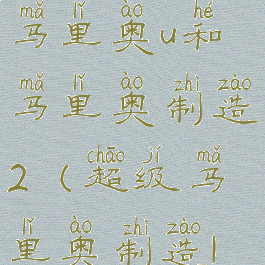 mǎ lǐ ào hé
马里奥u和
mǎ lǐ ào zhì zào
马里奥制造
chāo jí mǎ
2(超级马
lǐ ào zhì zào
里奥制造|